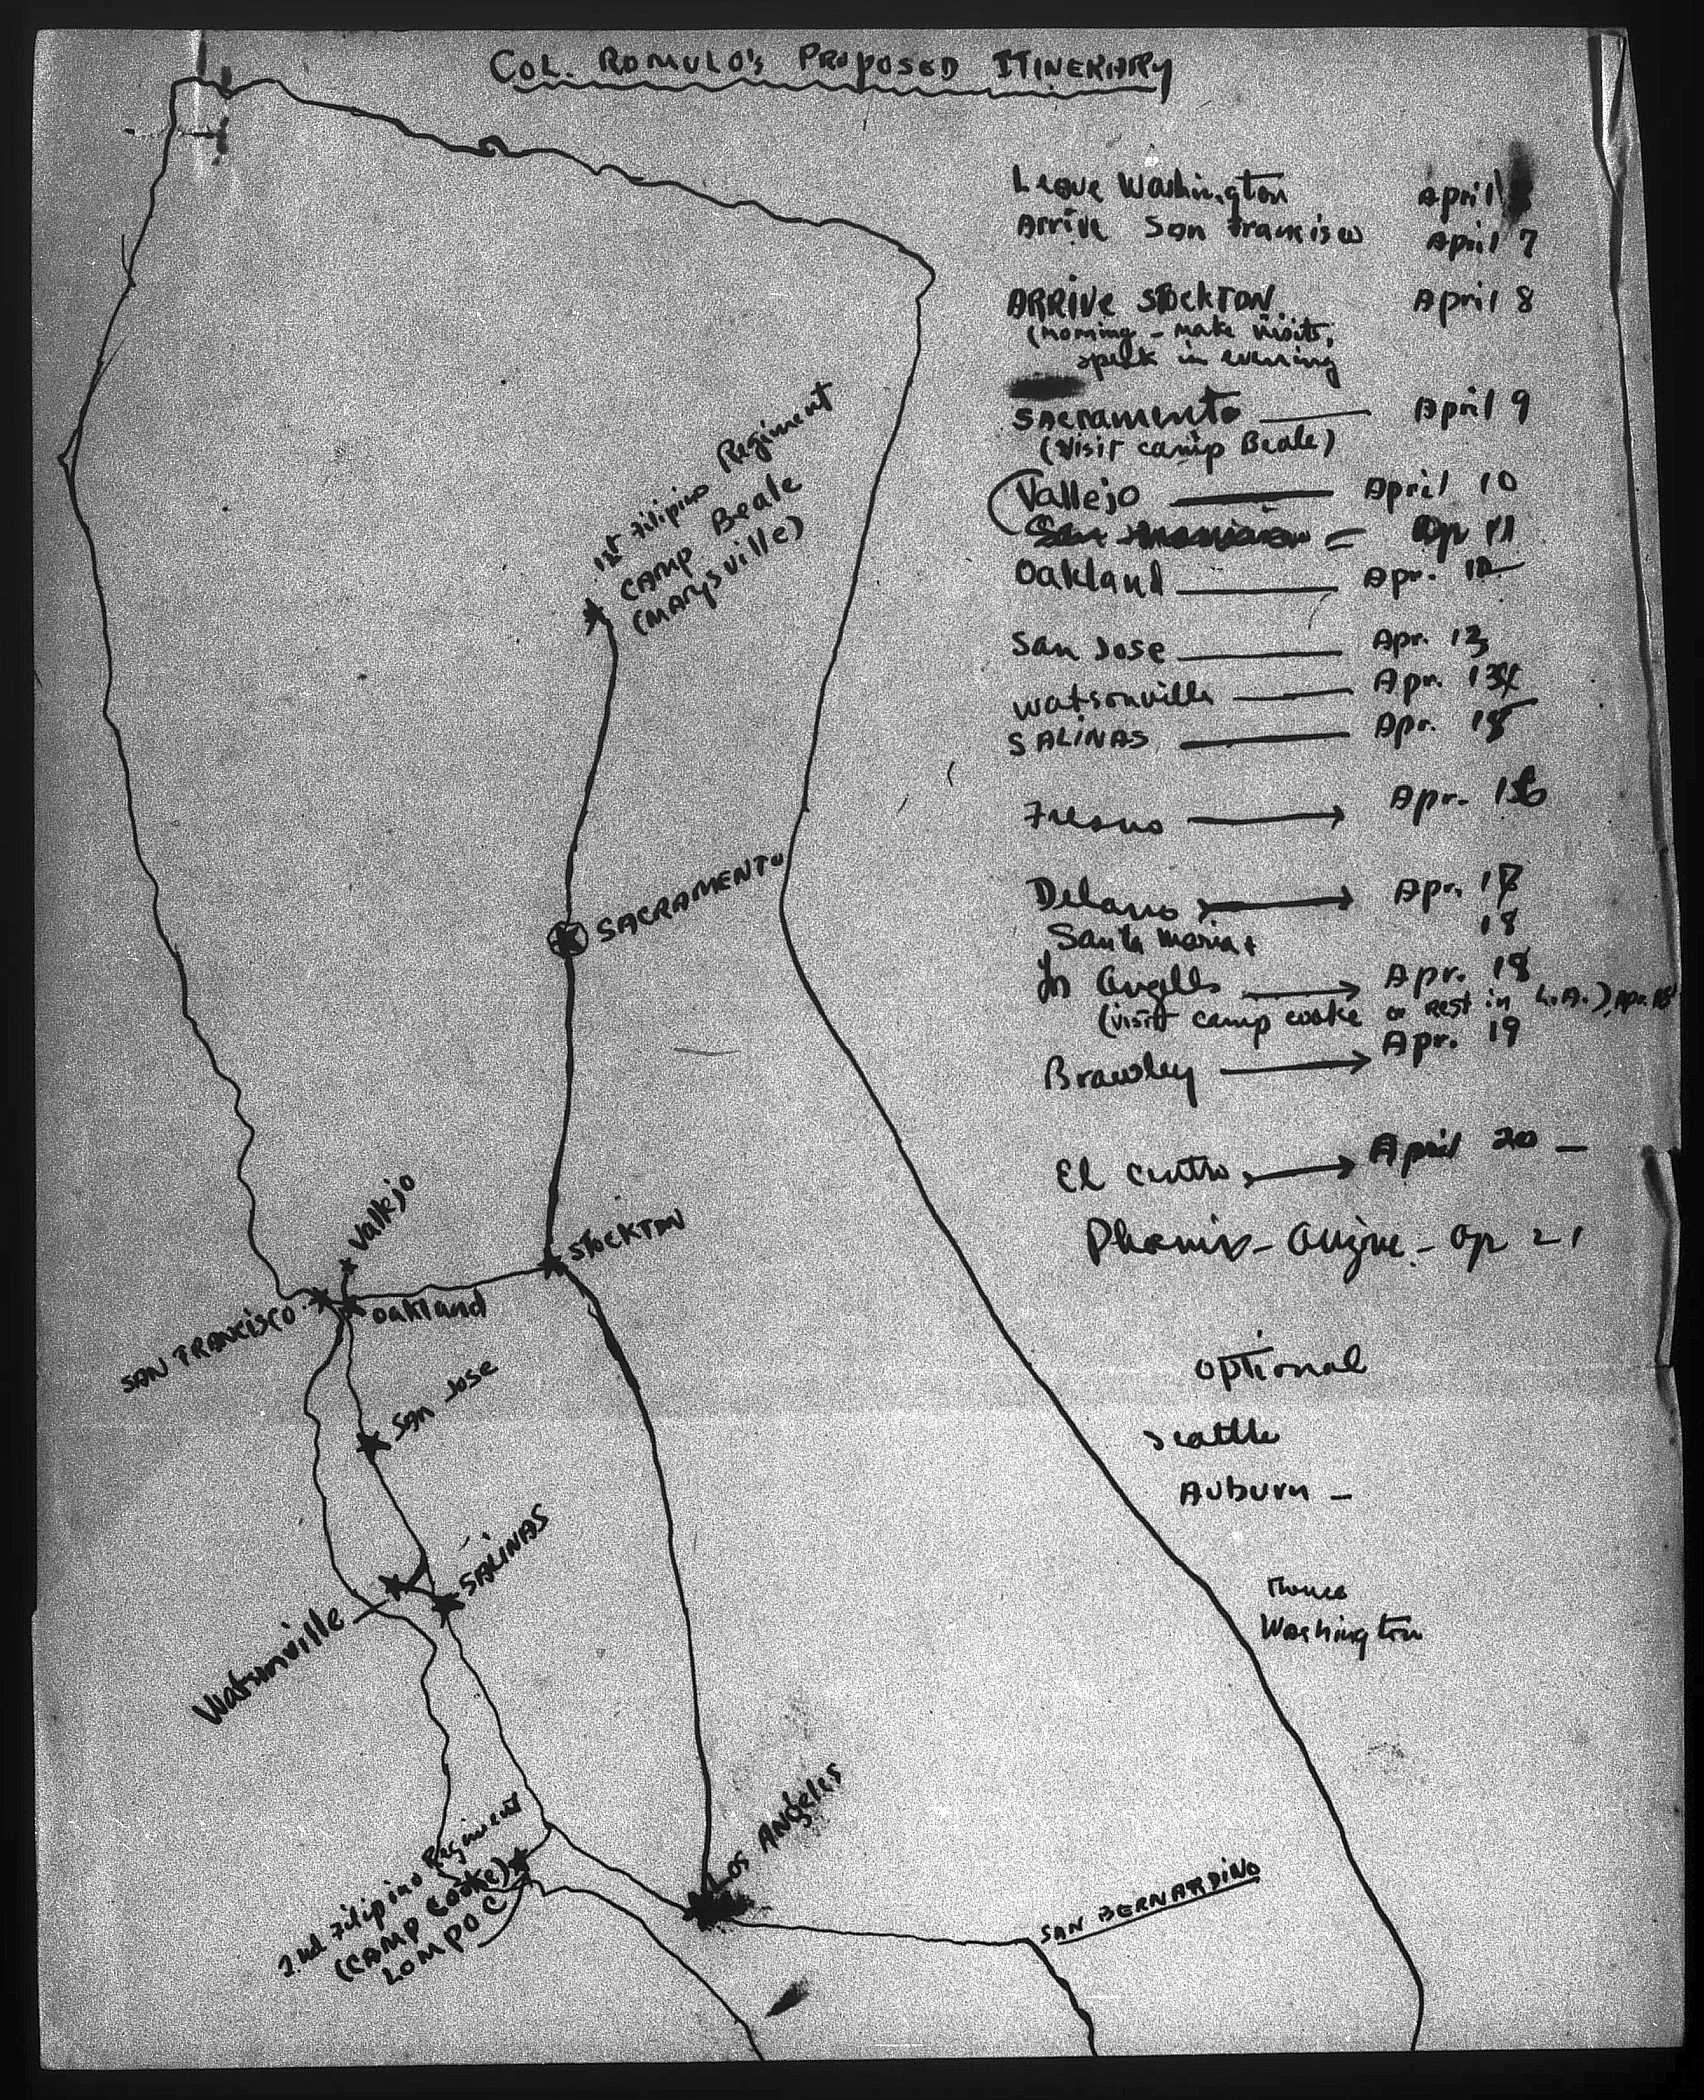 COL. ROMULO'S PROPOSED ITINERARY
Leave Washington April
Arrive San Francisco April 7
ARRIVE STOCKTON April 8
(Morning - make visits,
speak in evening
Sacramento April 9
(Visit camp Beale)
Vallejo April 10
Apr 11
Oakland Apr. 12
San Jose Apr. 13
Watsonville Apr. 14
SALINAS Apr. 15
Fresno Apr. 16
Delano Apr. 17
Santa Maria + 18
Los Angeles Apr. 18
(visit camp cooke or rest in L.A.), Apr.
Brawley Apr. 19
El Centro April 20 -
Phoenix - - Ap 21
optional
Seattle
Auburn -
Thence
Washington
1st Filipino Regiment
CAMP Beale
(MARYSVILLE)
SACRAMENTO
Vallejo
STOCKTON
SAN FRANCISCO
Oakland
SAN Jose
SALINAS
Watsonville
2nd Filipino Regiment
(CAMP COOKE)
LOMPOC
LOS ANGELES
SAN BERNARDINO